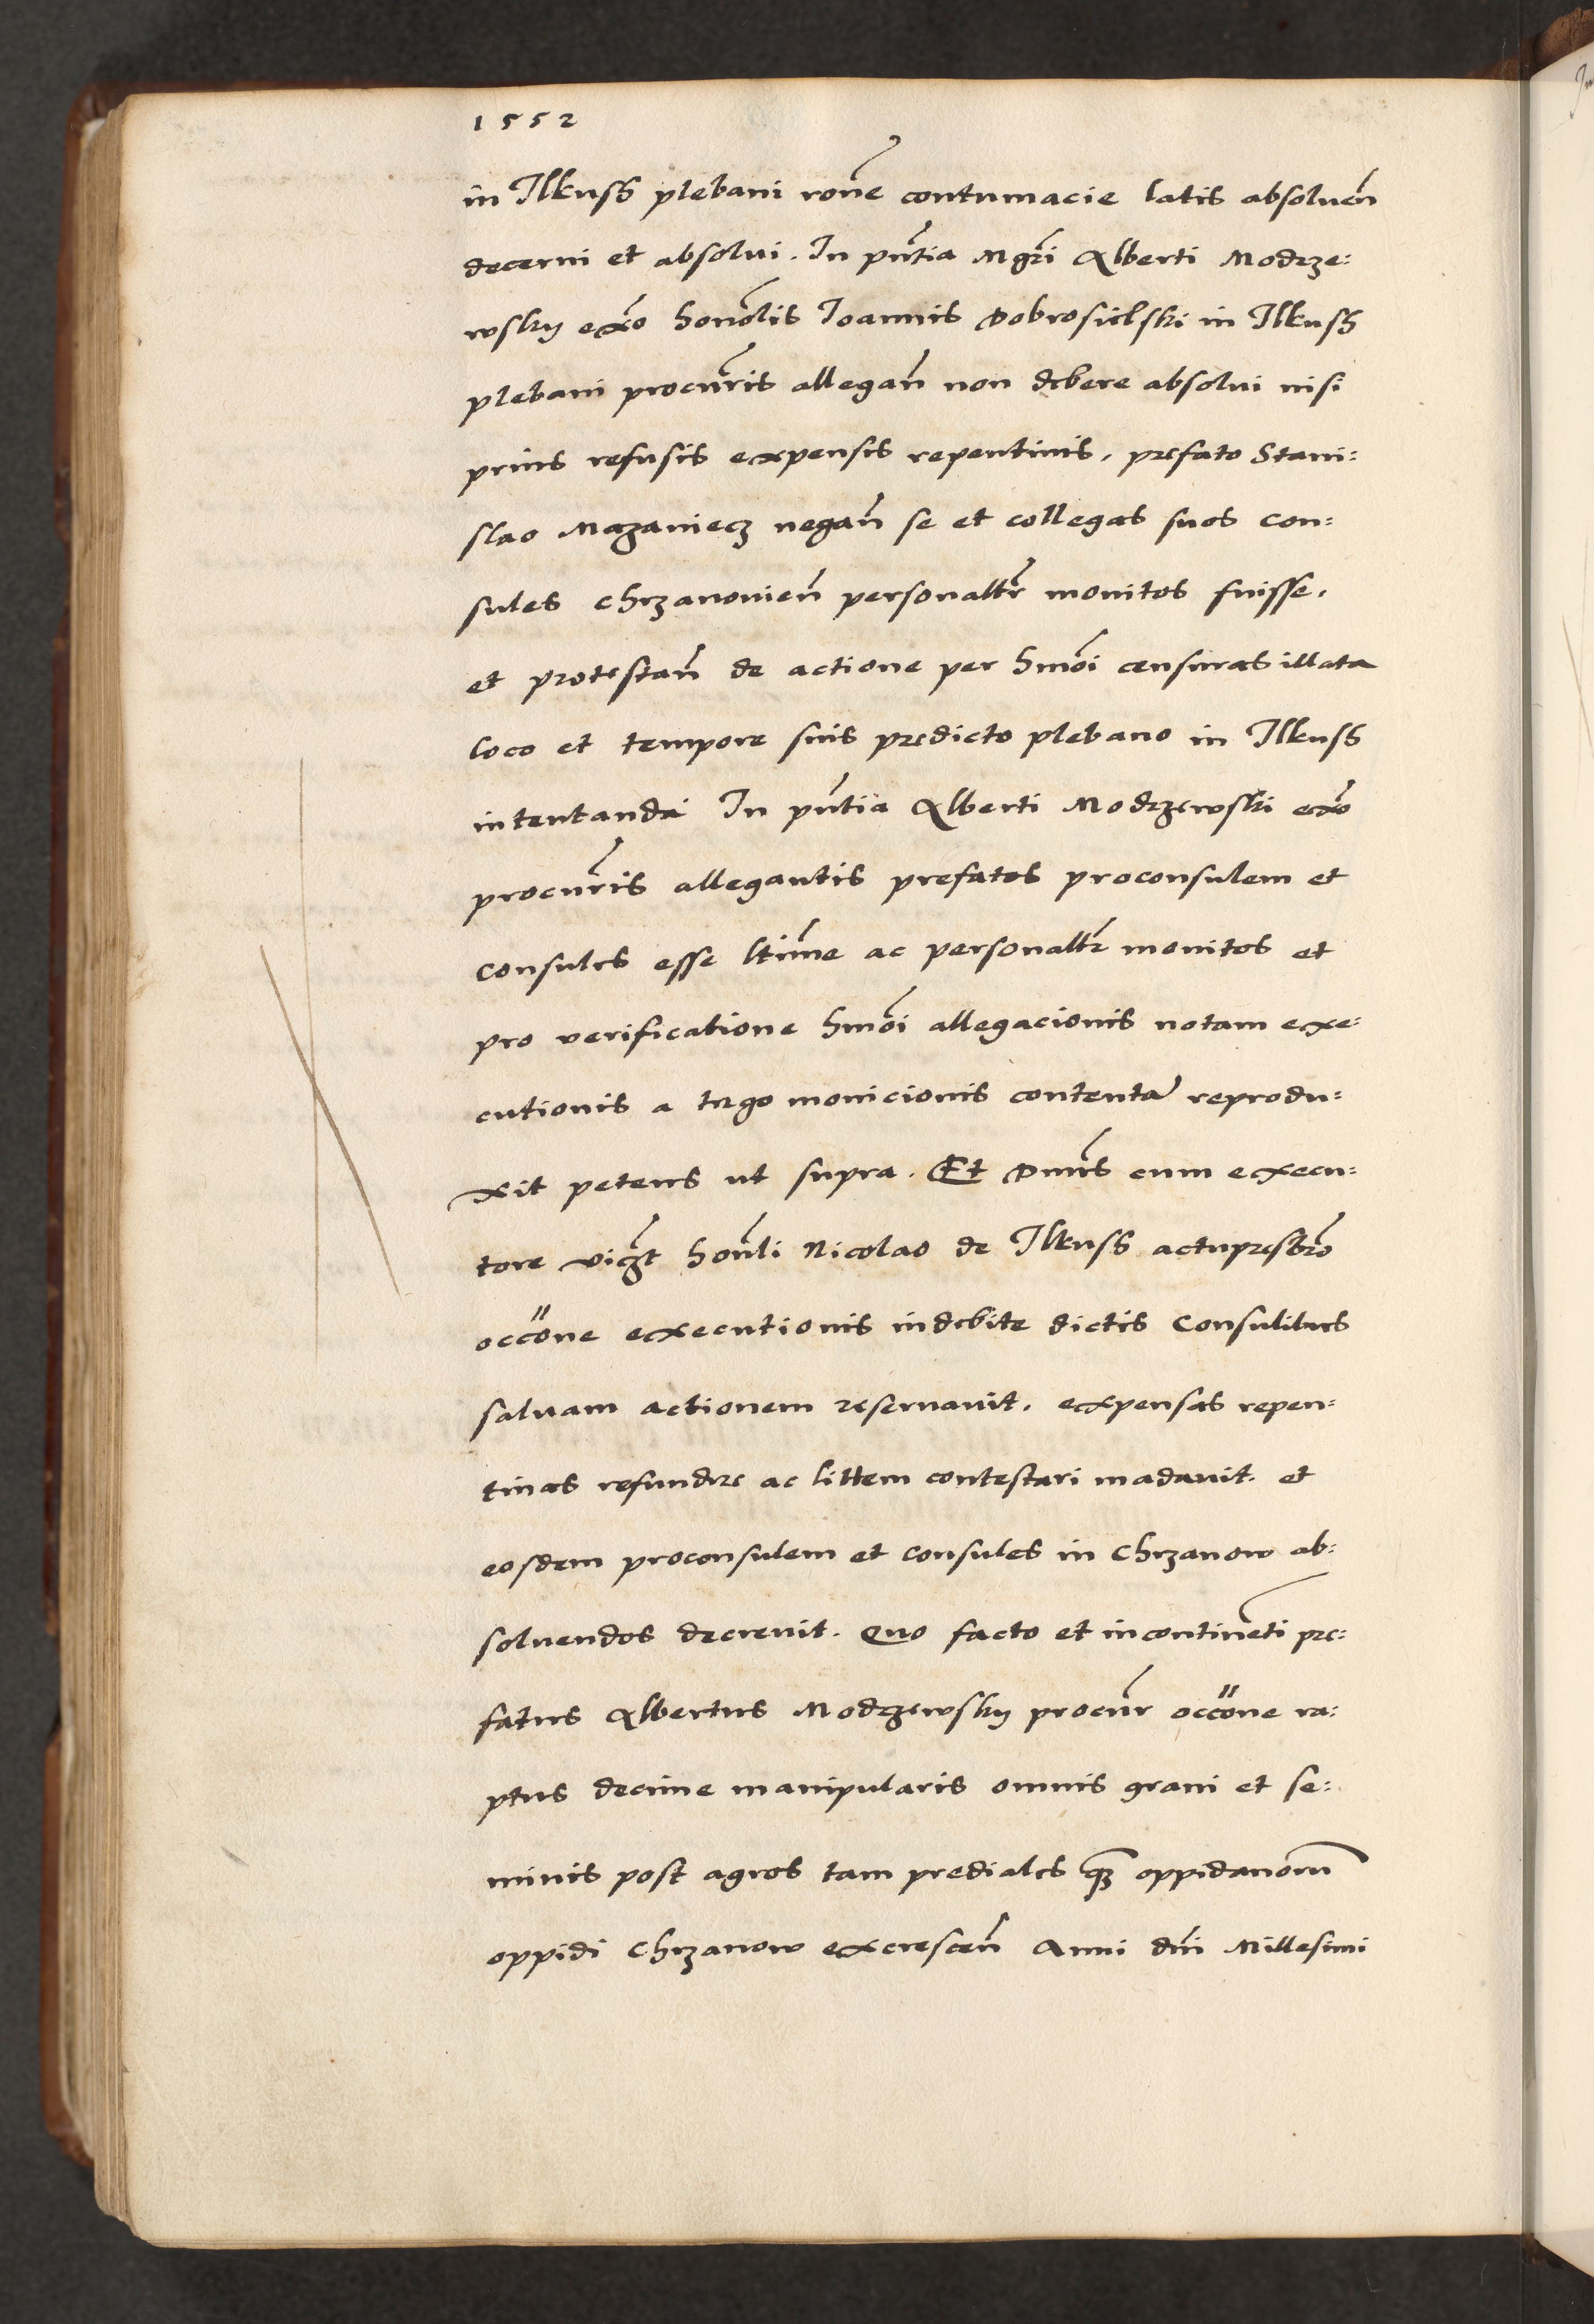 1552
in Ilkuss plebani rōne contumacie latis absoluen̄
decerni et absolui. In pn̄tia Mgr̄i Alberti Modrze:
wsky ex͞o honol̄is Joannis Dobrosielski in Ilkuss
plebani procur̄ris allegan̄ non debere absolui nisi
prius refusis expensis repentinis, prefato Stani:
slao Mazaniecz negan̄ se et collegas suos con:
sules Chrzanovien̄ personalt̄r monitos fuisse,
et protestan̄ de actione per hmōi censuras illata
loco et tempore suis predicto plebano in Ilkuss
intentanda In pn̄tia Alberti Modrzewski ex͞o
procur̄ris allegantis prefatos proconsulem et
consules esse ltīme ac personalt̄r monitos et
pro verificatione hmōi allegacionis notam exe:
cutionis a tergo monicionis contentā reprodu:
xit petens ut supra. Et Dn̄us cum execu:
tore vig̃t hon̄li Nicolao de Ilkuss actupresbr̄o
occōne executionis indebite dictis Consulibus
saluam actionem reseruauit, expensas repen:
tinas refundere ac littem contestari madauit. et
eosdem proconsulem et consules in Chrzanow ab:
soluendos decreuit. Quo facto et incontinēti pre:
fatus Albertus Modrzewsky procur̄ occōne ra:
ptus decime manipularis omnis grani et se:
minis post agros tam prediales q̃ȝ oppidanorū
oppidi Chrzanow excrescen̄ Anni dn̄i Millesimi